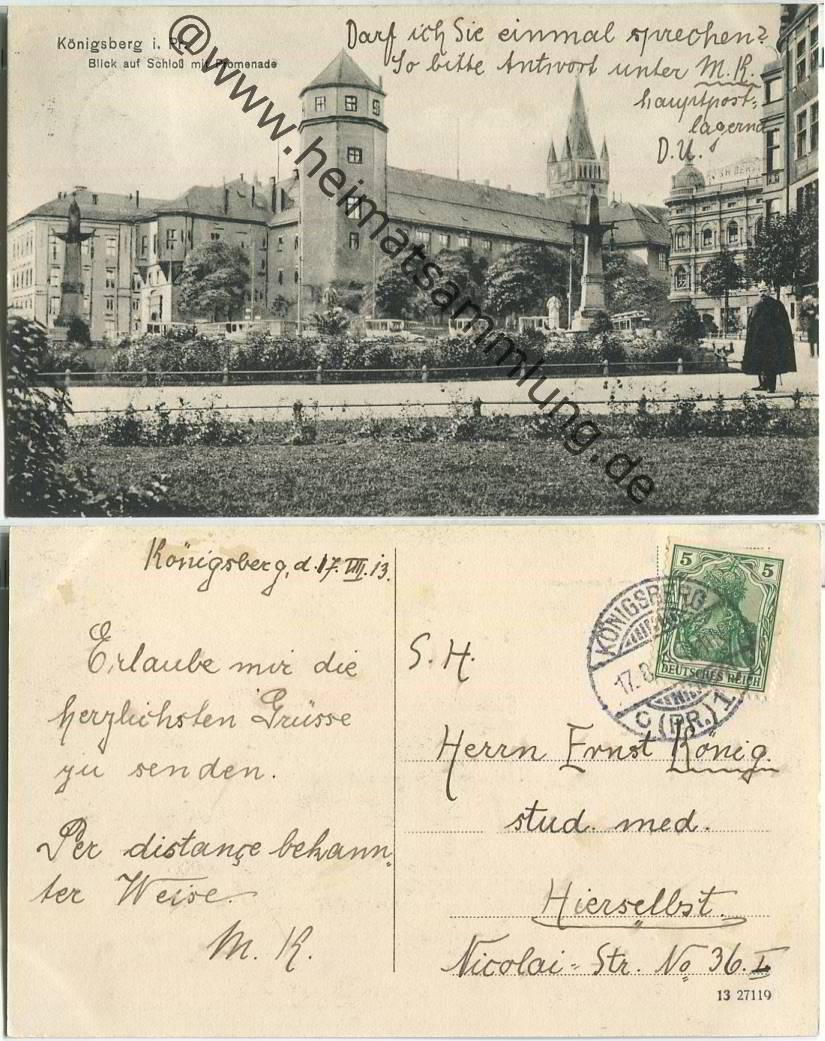 Königsberg i. Pr.
Blick auf Schloß mit Promenade
Darf ich Sie einmal sprechen?
So bitte Antwort unter M. K.
hauptpost-
lagernd
D. U.
@www.heimatsammlung.de
Königsberg, d. 17. VIII. 13.
Erlaube mir die
herzlichsten Grüsse
zu senden.
Per distançe bekann-
ter Weise.
M. K.
5 5
DEUTSCHES REICH
KÖNIGSBERG
17.8
C (PR.) 1
S. H.
Herrn Ernst König.
stud. med.
Hierselbst.
Nicolai-Str. No 36. I.
13 27119